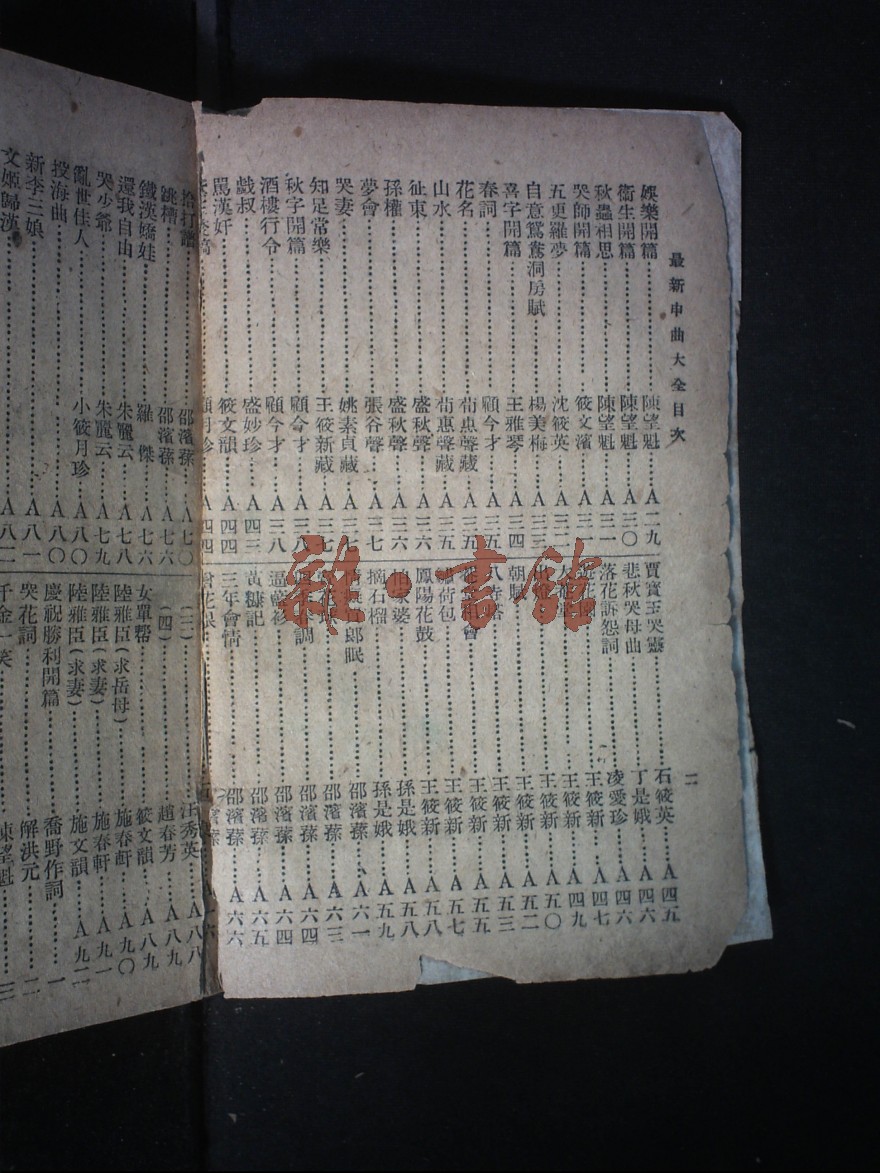 最新申曲大全目次
二
娛樂開篇……陳望魁……A二九
衞生開篇……陳望魁……A三〇
秋蟲相思……陳望魁……A三一
哭師開篇……筱文濱……A三一
五更羅夢……沈筱英……A三二
自意鴛鴦洞房賦……楊美梅……A三三
喜字開篇……王雅琴……A三四
春詞……顧今才……A三五
花名……荀惠聲藏……A三五
山水……荀惠聲藏……A三五
征東……盛秋聲……A三六
孫權……盛秋聲……A三六
夢會……張谷聲……A三七
哭妻……姚素貞藏……A三七
知足常樂……王筱新藏……A三七
秋字開篇……顧今才……A三八
酒樓行令……顧今才……A三八
戲叔……盛妙珍……A四三
罵漢奸……筱文韻……A四四
顧月珍……A四四
賈寶玉哭靈……石筱英……A四五
悲秋哭母曲……丁是娥……A四六
落花訴怨詞……凌愛珍……A四六
王筱新……A四七
王筱新……A四九
王筱新……A五〇
王筱新……A五二
朝……王筱新……A五三
王筱新……A五五
會……王筱新……A五七
荷包……王筱新……A五八
鳳陽花鼓……孫是娥……A五八
怕家婆……孫是娥……A五九
摘石榴……邵濱蓀……A六一
郎眠……邵濱蓀……A六三
邵濱蓀……A六四
調……邵濱蓀……A六四
黃糠記……邵濱蓀……A六五
三年會情……邵濱蓀……A六六
拾打譜……邵濱蓀……A七〇
跳槽……邵濱蓀……A七六
鐵漢嬌娃……羅傑……A七六
還我自由……朱麗云……A七八
哭少爺……朱麗云……A七九
亂世佳人……小筱月珍……A八〇
投海曲……A八〇
新李三娘……A八一
文姬歸漢……A八二
(三)……汪秀英……A八八
(四)……趙春芳……A八九
女單幫……筱文韻……A八九
陸雅臣(求岳母)……施春軒……A九〇
陸雅臣(求妻)……施春軒……A九一
陸雅臣(求妻)……施文韻……A九二
慶祝勝利開篇……喬野作詞……一
哭花詞……解洪元……二
千金一笑……陳望魁……三
雜·書館